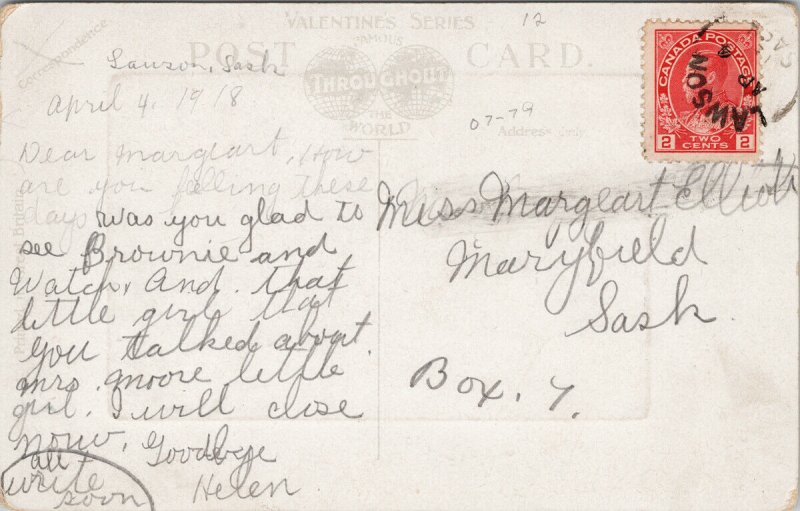 VALENTINES SERIES
12
POST CARD.
FAMOUS
THROUGHOUT
THE
WORLD
Correspondence
Address Only
07-79
CANADA POSTAGE
2 TWO CENTS 2
LAWSON
AP 4
SASK
Lawson, Sask
April 4, 1918
Dear Margeart, How
are you felling these
days was you glad to
see Brownie and
Watch, And that
little girl that
you talked about.
mrs. moore little
girl. I will close
now, Goodbye
Helen
all
write
soon
Miss Margeart Elliott
Maryfield
Sask.
Box. 7.